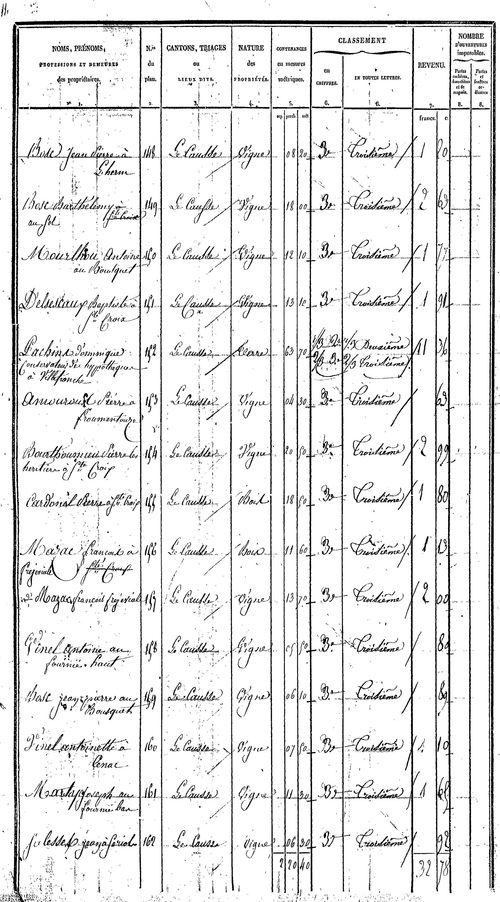 11.
NOMS, PRÉNOMS,
PROFESSIONS ET DEMEURES
des propriétaires.
N.os
du
plan.
CANTONS, TRIAGES
OU
LIEUX DITS.
NATURE
des
PROPRIÉTÉS.
CONTENANCES
en mesures
métriques.
CLASSEMENT
en
CHIFFRES.
EN TOUTES LETTRES.
REVENU.
NOMBRE
D'OUVERTURES
imposables.
1. 2. 3. 4. 5. 6. 6. 7. 8. 8.
francs. c
Bosc Jean Pierre à 148 Le Causse Vigne 08 20 3e Troisième 1 20
Lherm
Bosc Barthélemy à 149 Le Causse Vigne 18 00 3e Troisième 2 63
au sol
Mourthou Antoine 150 Le Causse Vigne 12 10 3e Troisième 1 77
au Bousquet
Baptiste à 151 Le Causse Vigne 13 10 3e Troisième 1 91
Ste Croix
Pachins dominique 152 Le Causse Terre 63 70 1/3 2e 1/3 Deuxième 11 36
Conservateur des hypothèques 2/3 3e 2/3 Troisième
à Villefranche
Amouroux Pierre à 153 Le Causse Vigne 04 30 3e Troisième 63
froumentouze
Pierre les 154 Le Causse Vigne 20 50 3e Troisième 2 99
héritiers à Ste Croix
Cardonal Pierre à Ste Croix 155 Le Causse Bois 18 50 3e Troisième 1 80
Mazac francois à 156 Le Causse Bois 11 60 3e Troisième 1 13
frejeviale
dt Mazac francois frejeviale 157 Le Causse Vigne 13 70 3e Troisième 2 00
Vinel antoine au 158 Le Causse Vigne 05 50 3e Troisième 80
fournié haut
Bosc jean pierre au 159 Le Causse Vigne 06 10 3e Troisième 89
Bousquet
Vinel antoinette à 160 Le Causse Vigne 07 50 3e Troisième 1 10
Cenac
Marty Joseph au 161 Le Causse Vigne 11 30 3e Troisième 1 65
fournié bas
jean à 162 Le Causse Vigne 06 30 3e Troisième 92
2 20 40 32 78